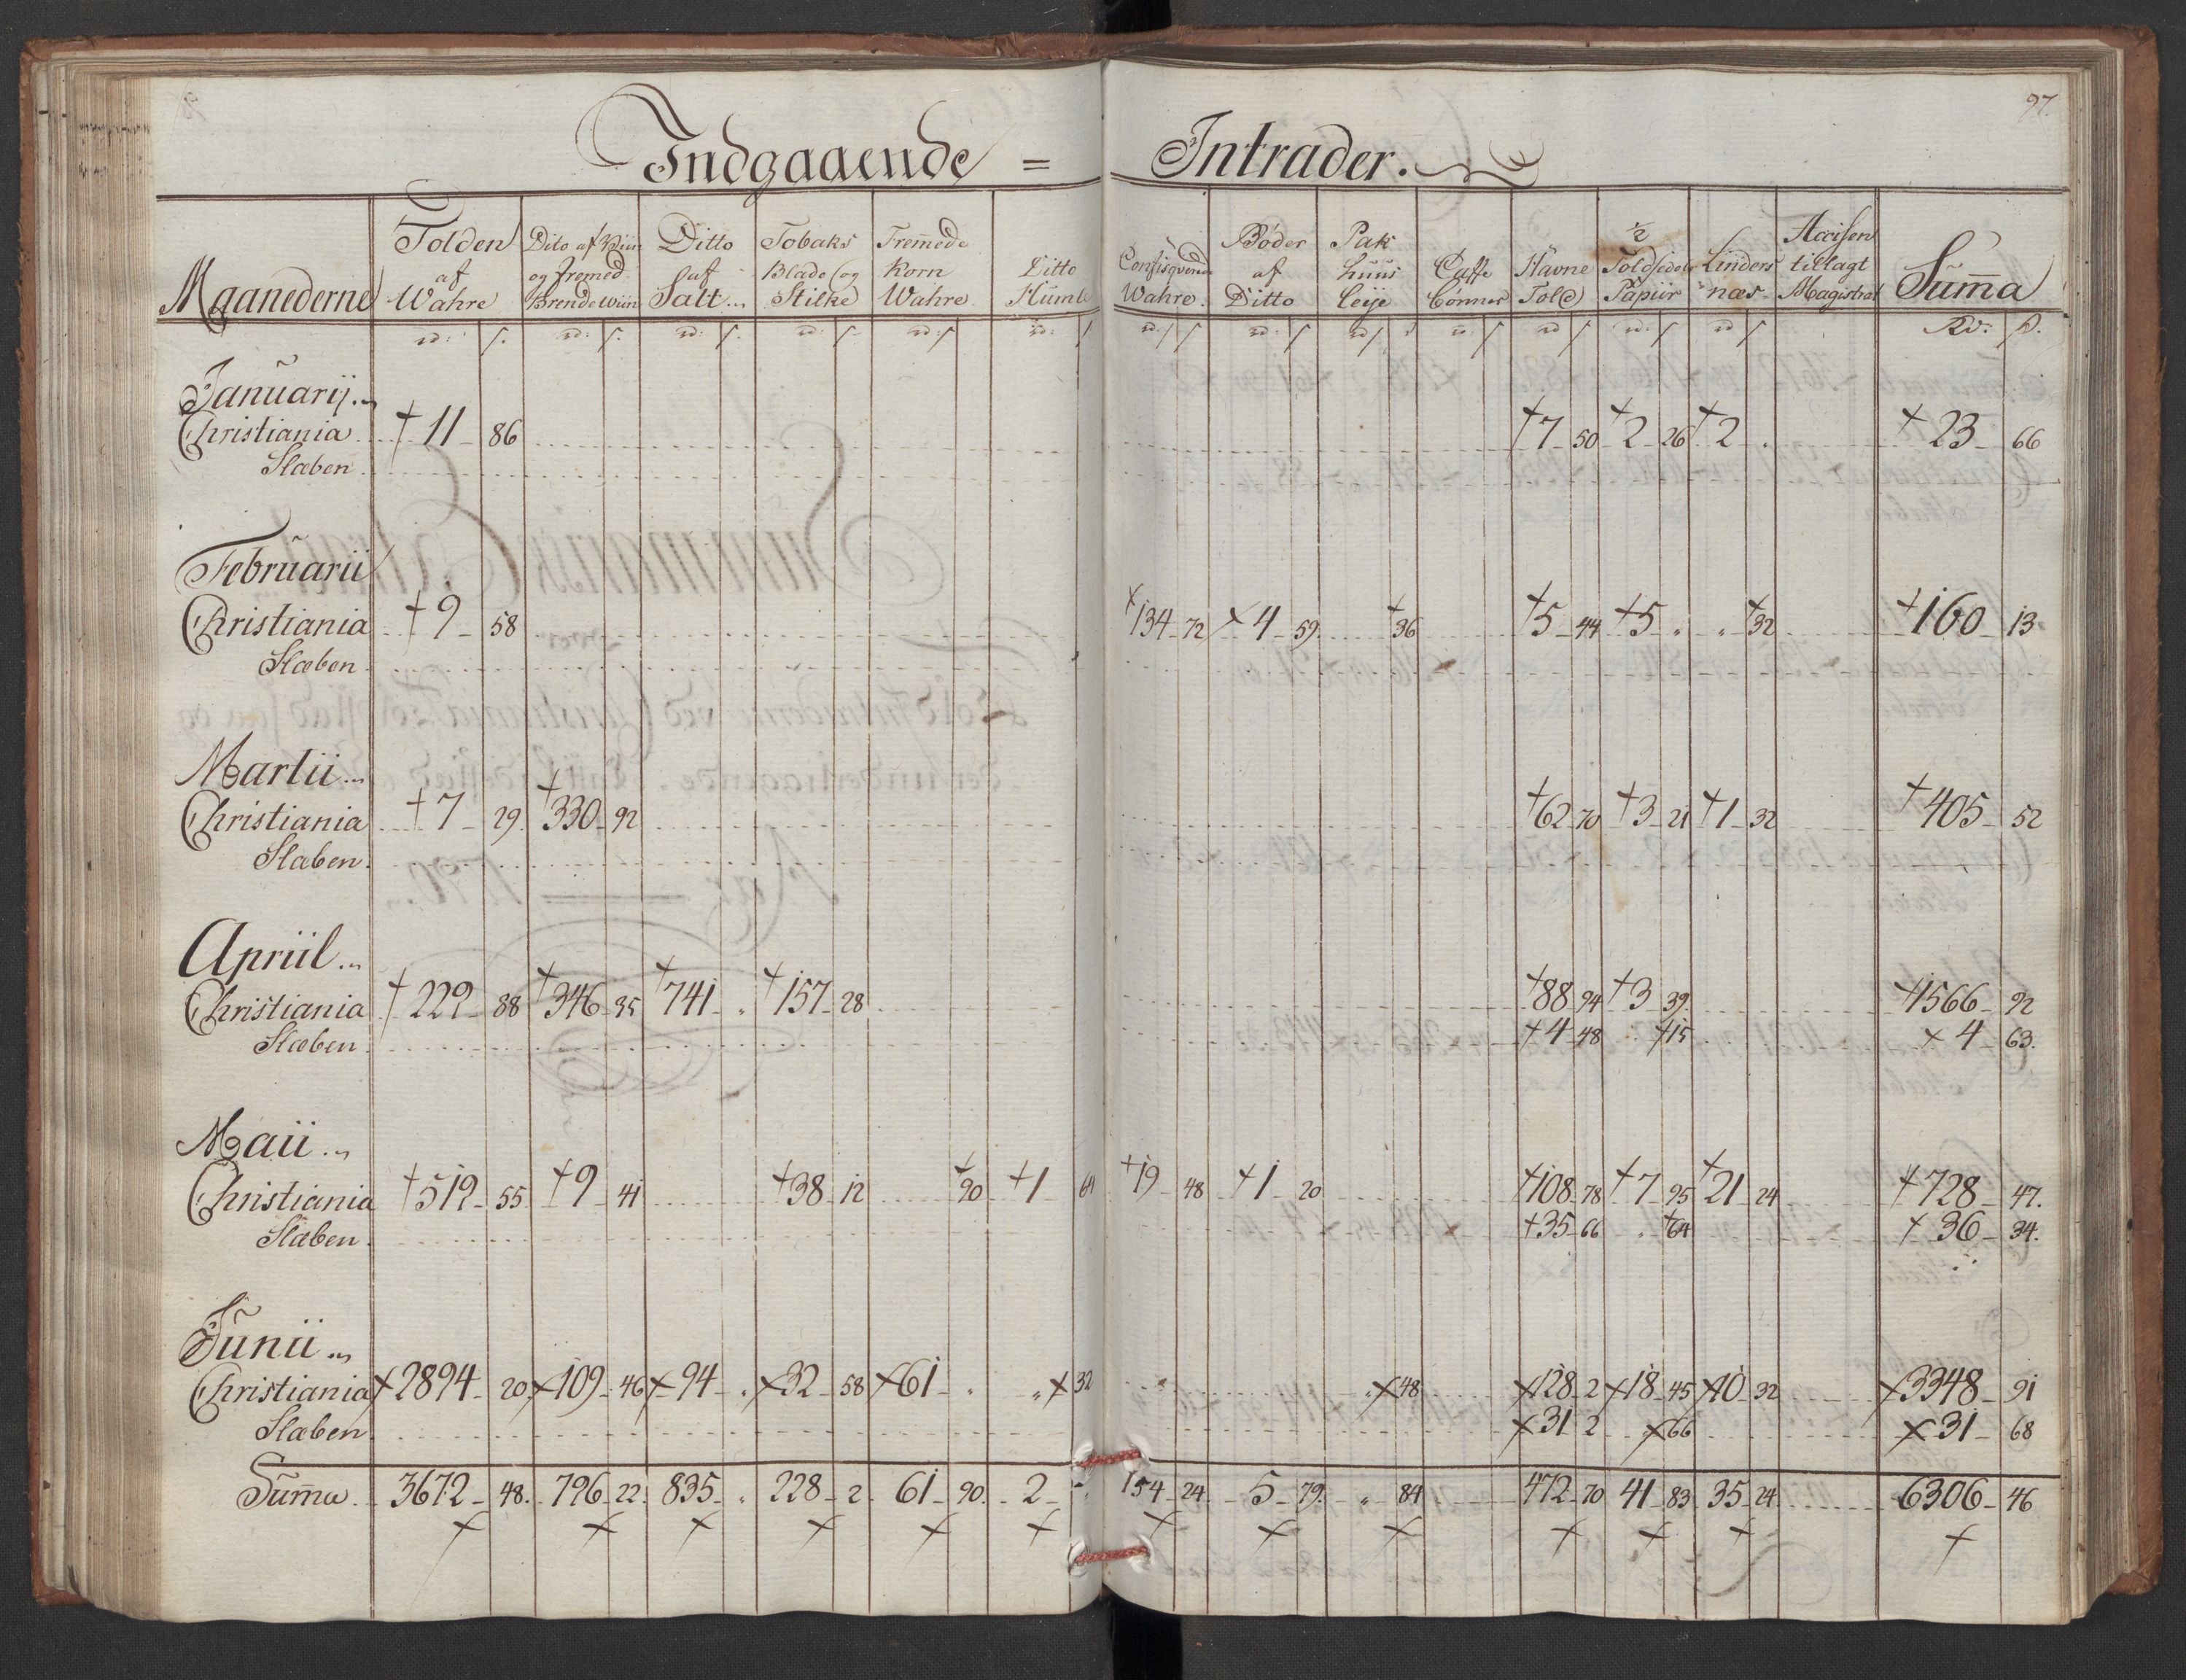 97.
Indgaaende = Intrader.
Maanederne | Tolden af Wahre | Dito af Viin og fremed Brendewiin | Ditto af Salt | Tobaks Blade og Stilke | Fremede Korn Wahre | Ditto Humle | Confisqverede Wahre. | Bøder af Ditto | Pak huus Leije | Caffe | Havne Told | ½ Toldsedel Papiir | Linders næs | Accisen tillagt Magistrat | Suma
rd: | s. | rd: | s. | rd: | s. | rd: | s. | rd: | s | rd: | s | rd: | s | rd: | s | rd | s | rd: | s | rd | s | rd: | s | rd | s | Rd: | s.
Januarij.
Christiania + 11 86 + 7 50 + 2 26 + 2 . + 23 66
Slæben
Februarii
Christiania + 9 58 x 134 72 x 4 59 + 36 + 5 44 + 5 " " + 32 + 160 13
Slæben
Martii
Christiania + 7 29 + 330 92 + 62 70 + 3 21 + 1 32 + 405 52
Slæben.
Apriil
Christiania + 229 88 + 346 35 + 741 . + 157 28 + 88 94 + 3 39 + 1566 92
Slæben + 4 48 + 15 x 4 63.
Maii
Christiania + 519 55 + 9 41 + 38 12 + 90 + 1 64 + 19 48 + 1 20 + 108 78 + 7 95 + 21 24 + 728 47.
Slæben + 35 66 " + 64 + 36 34.
Junii
Christiania x 2894 20 x 109 46 x 94 " x 32 58 x 61 " " x 32 " x 48 x 128 2 x 18 45 x 10 32 x 3348 91
Slæben x 31 2 x 66 x 31 68
Suma 3672 48. 796 22. 835 " 228 2 61 90. 2 " 154 24 5 79. " 84 472 70 41 83 35 24 6306 46
x x x x x x x x x x x x x